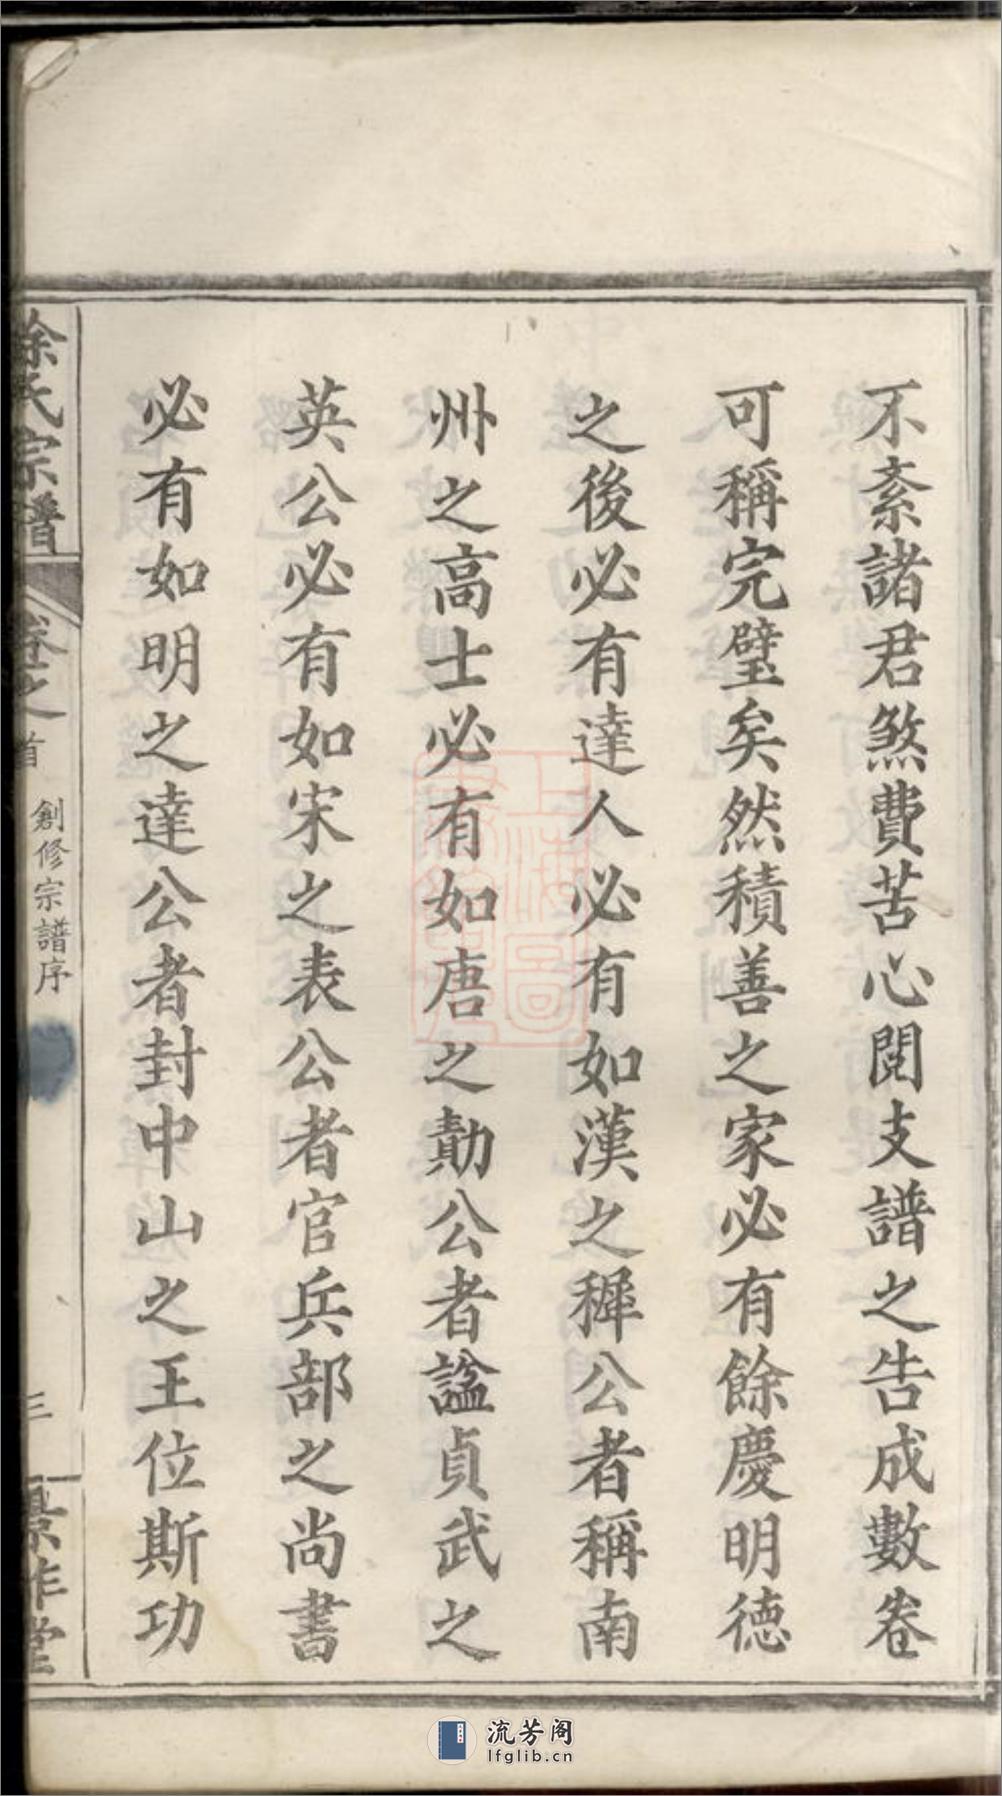 不紊諸君煞費苦心閱支譜之告成數卷
可稱完璧矣然積善之家必有餘慶明德
之後必有達人必有如漢之穉公者稱南
州之高士必有如唐之勣公者諡貞武之
英公必有如宋之表公者官兵部之尚書
必有如明之達公者封中山之王位斯功
徐氏宗譜
卷之首
創修宗譜序
三
上海圖
流芳阁
lfglib.cn